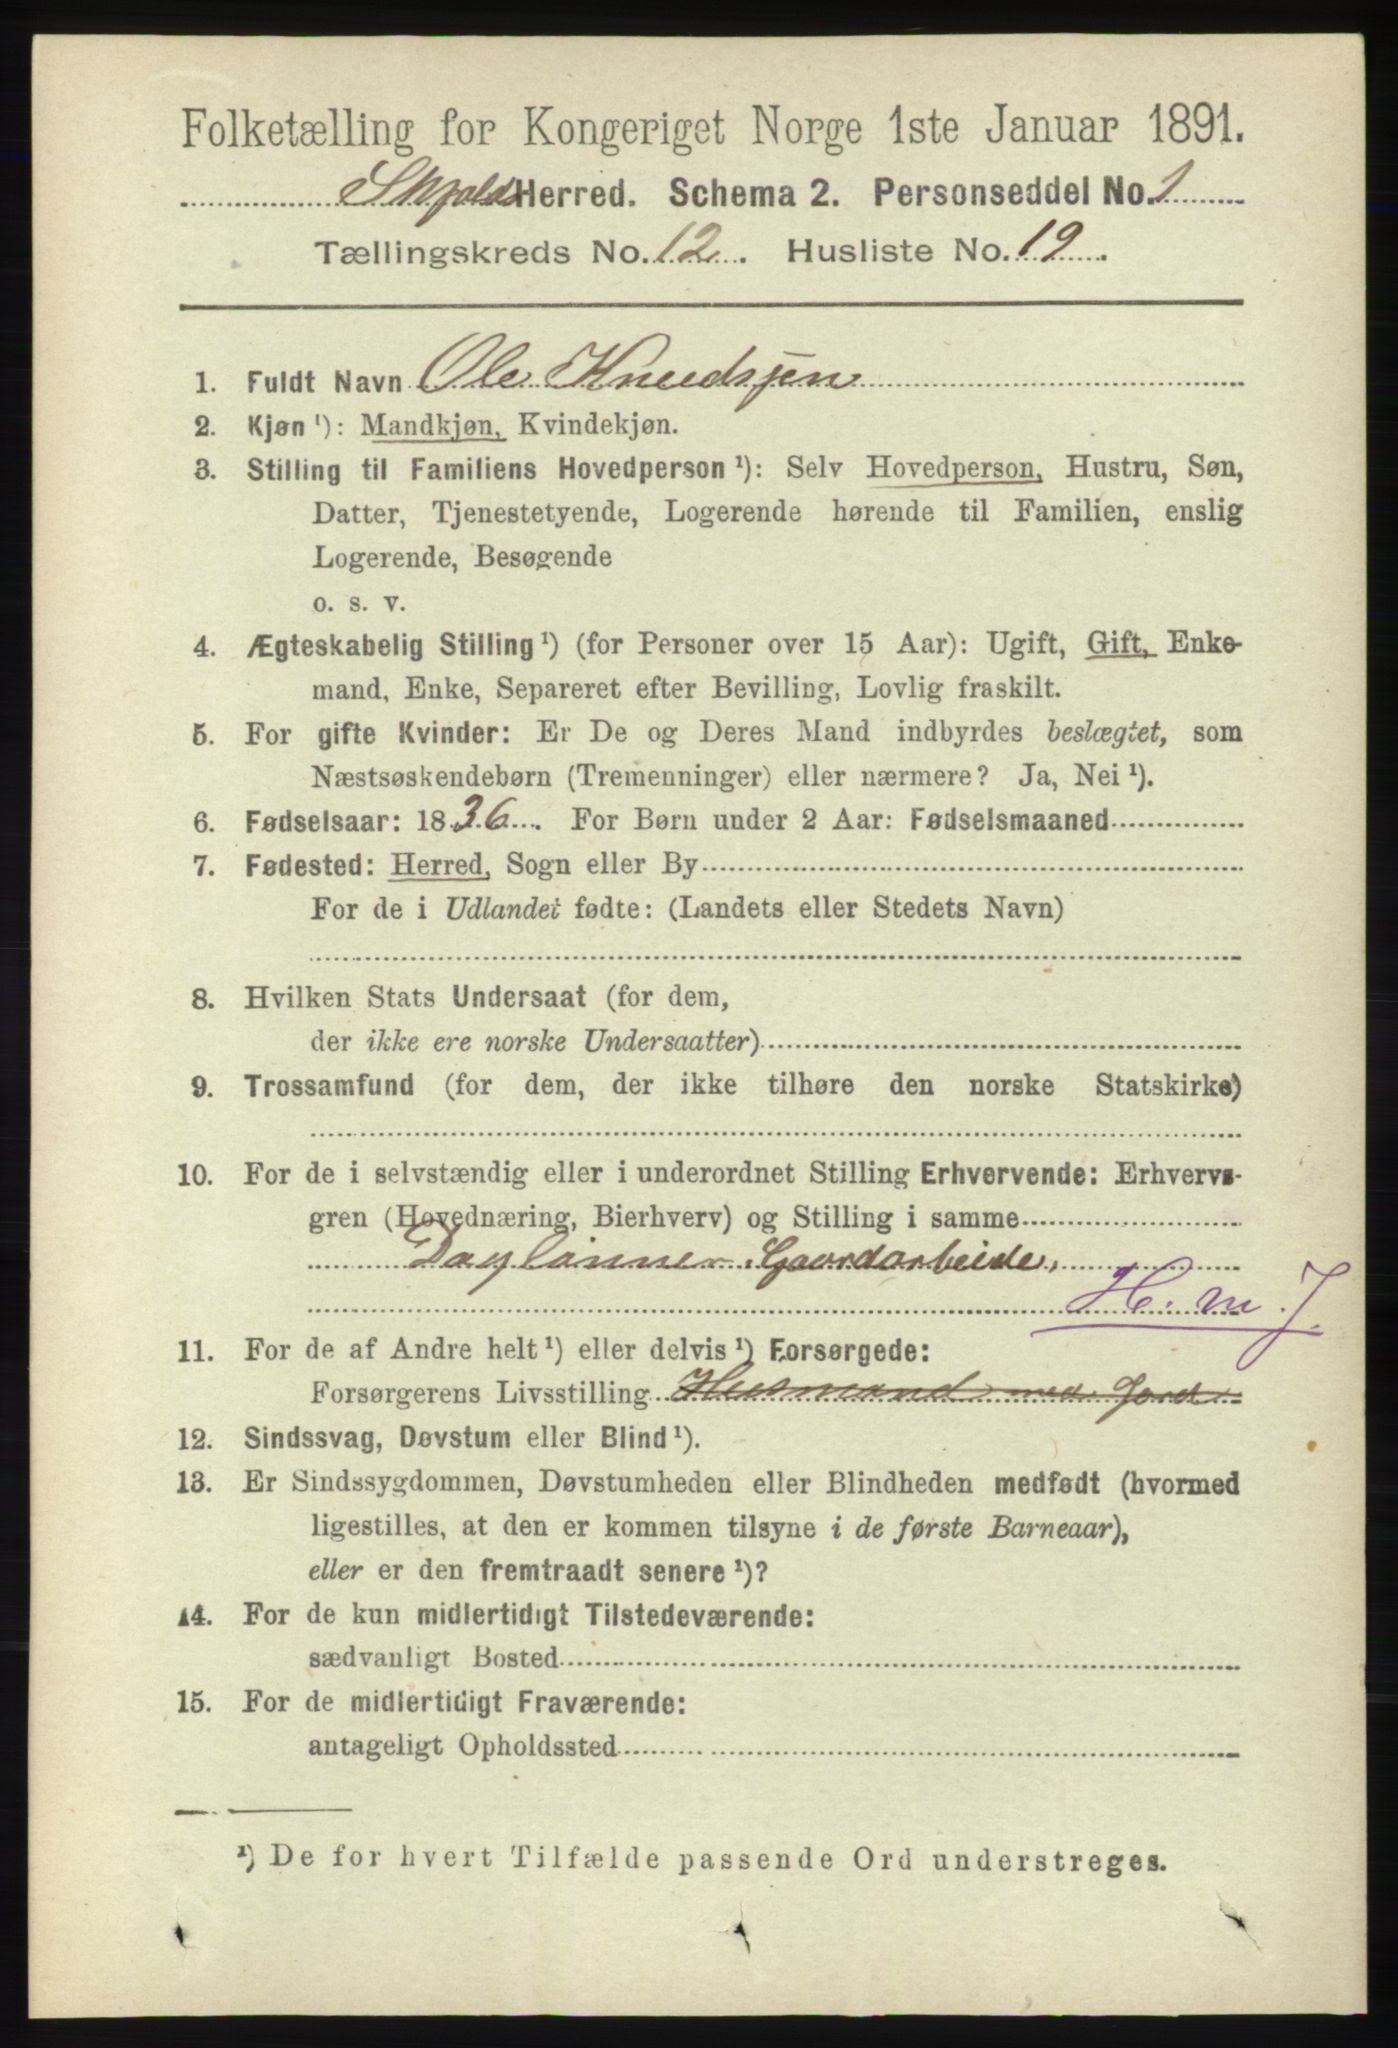 Folketælling for Kongeriget Norge 1ste Januar 1891.
Skjolds Herred. Schema 2. Personseddel No. 1
Tællingskreds No. 12. Husliste No. 19.
1. Fuldt Navn Ole Knudsen
2. Kjøn ¹): Mandkjøn, Kvindekjøn.
3. Stilling til Familiens Hovedperson ¹): Selv Hovedperson, Hustru, Søn,
Datter, Tjenestetyende, Logerende hørende til Familien, enslig
Logerende, Besøgende
o. s. v.
4. Ægteskabelig Stilling ¹) (for Personer over 15 Aar): Ugift, Gift, Enke-
mand, Enke, Separeret efter Bevilling, Lovlig fraskilt.
5. For gifte Kvinder: Er De og Deres Mand indbyrdes beslægtet, som
Næstsøskendebørn (Tremenninger) eller nærmere? Ja, Nei ¹).
6. Fødselsaar: 1836. For Børn under 2 Aar: Fødselsmaaned
7. Fødested: Herred, Sogn eller By
For de i Udlandet fødte: (Landets eller Stedets Navn)
8. Hvilken Stats Undersaat (for dem,
der ikke ere norske Undersaatter)
9. Trossamfund (for dem, der ikke tilhøre den norske Statskirke)
10. For de i selvstændig eller i underordnet Stilling Erhvervende: Erhvervs-
gren (Hovednæring, Bierhverv) og Stilling i samme
Daglønner. Gaardarbeide,
H. m. J.
11. For de af Andre helt ¹) eller delvis ¹) Forsørgede:
Forsørgerens Livsstilling Husmand med Jord
12. Sindssvag, Døvstum eller Blind ¹).
13. Er Sindssygdommen, Døvstumheden eller Blindheden medfødt (hvormed
ligestilles, at den er kommen tilsyne i de første Barneaar),
eller er den fremtraadt senere ¹)?
14. For de kun midlertidigt Tilstedeværende:
sædvanligt Bosted
15. For de midlertidigt Fraværende:
antageligt Opholdssted
¹) De for hvert Tilfælde passende Ord understreges.